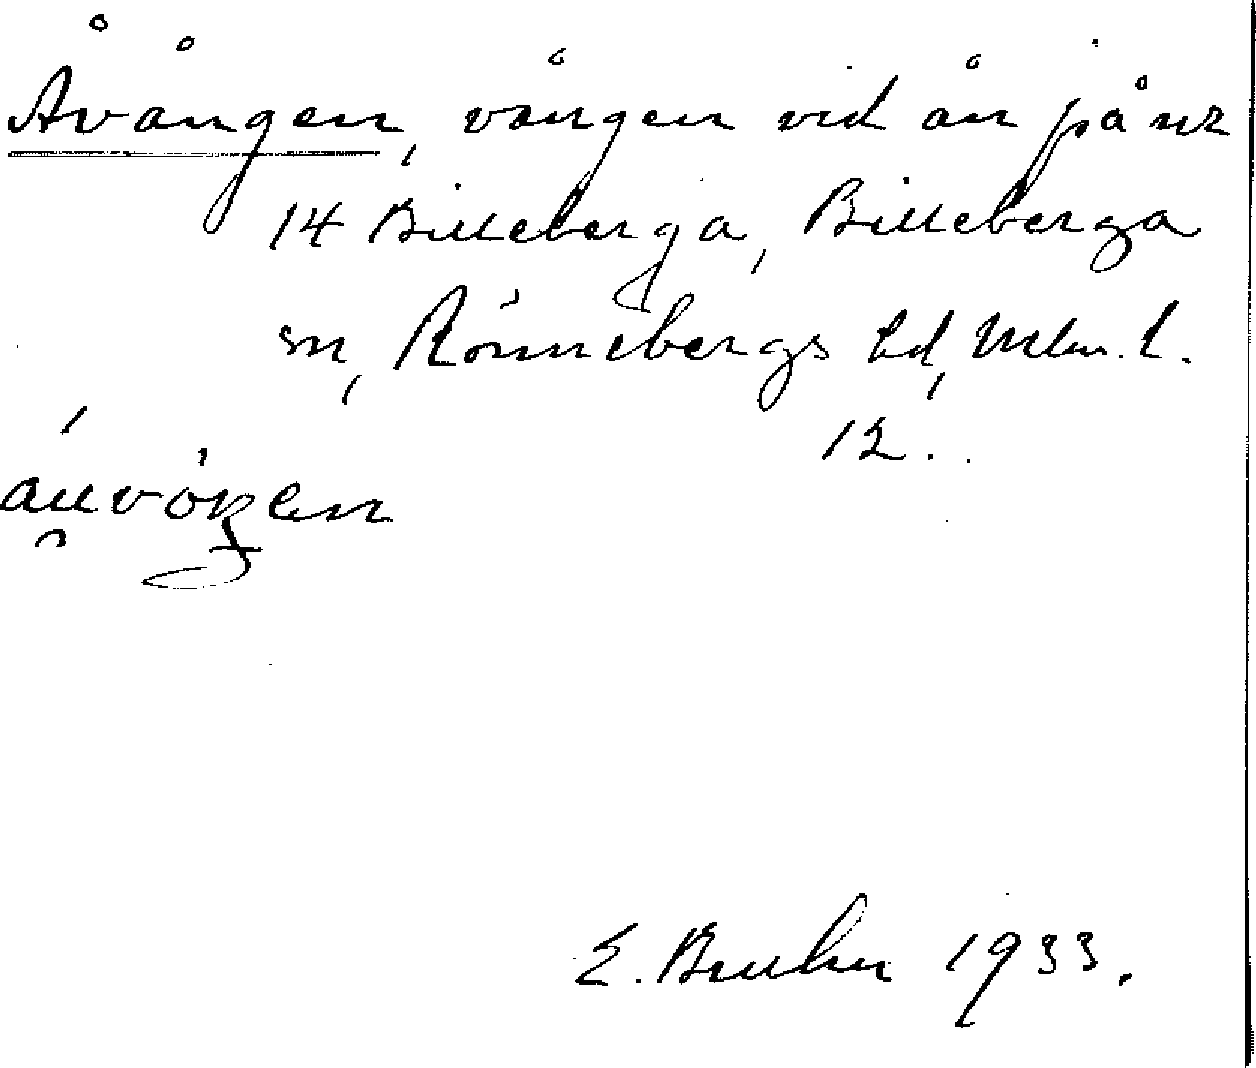 Åvången, vången vid ån på nr
14 Billeberga, Billeberga
sn, Rönnebergs hd, Mlm. l.
12.
E. 1933.